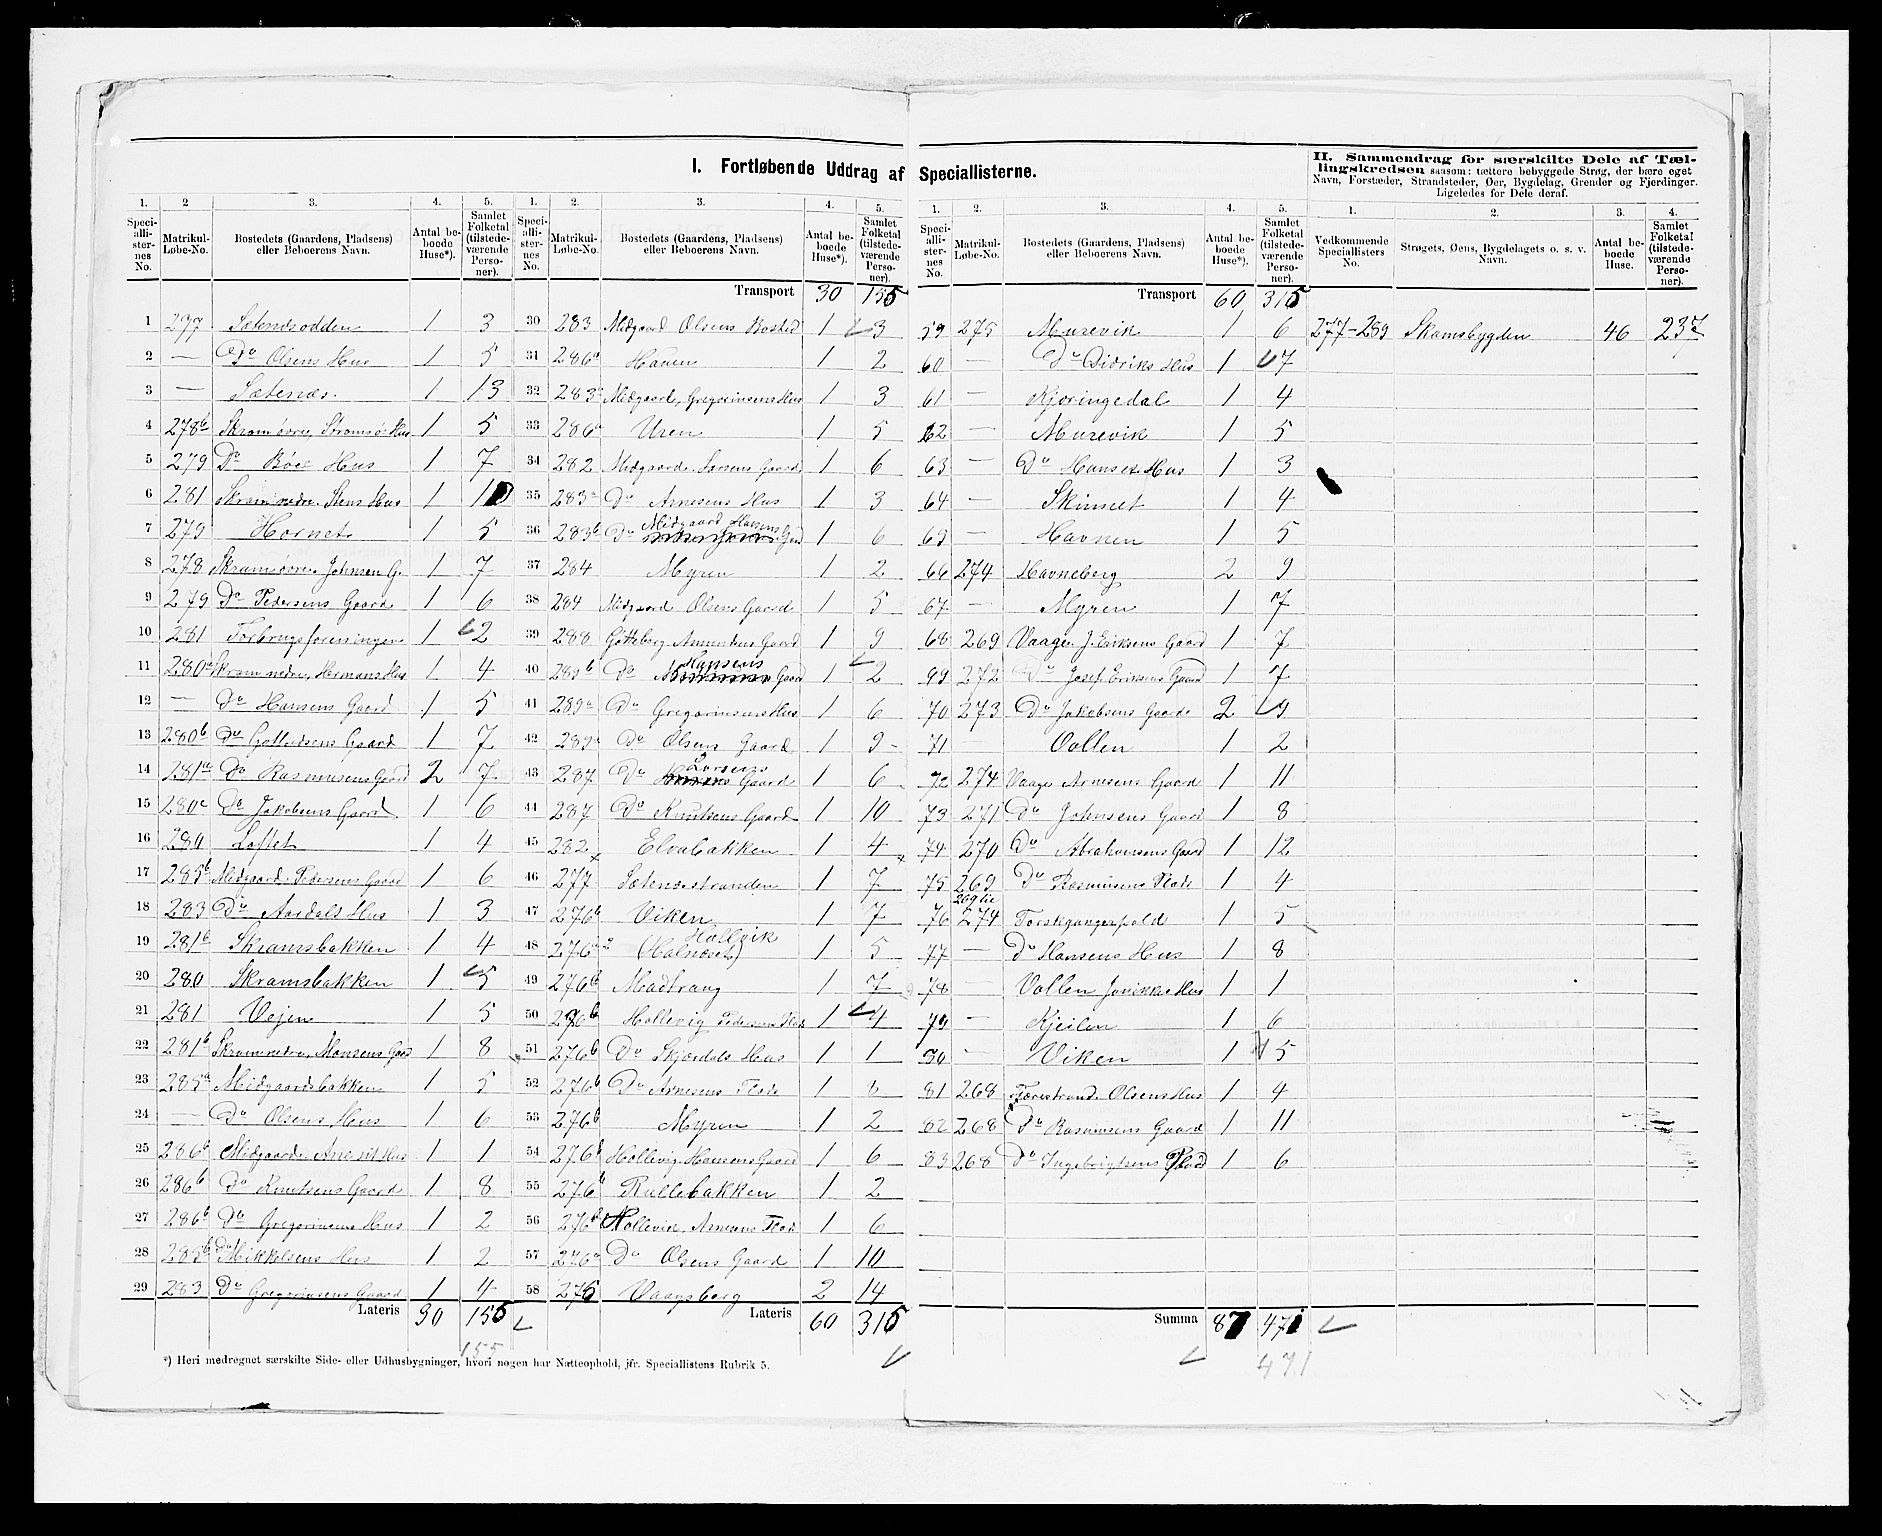 I. Fortløbende Uddrag af Speciallisterne.
II. Sammendrag for særskilte Dele af Tællingskredsen saasom: tættere bebyggede Strøg, der bære eget Navn, Forstæder, Strandsteder, Øer, Bygdelag, Grender og Fjerdinger. Ligeledes for Dele deraf.
1. 2 3. 4. 5.
Speciallisternes No. Matrikul-Løbe-No. Bostedets (Gaardens, Pladsens) eller Beboerens Navn. Antal beboede Huse*). Samlet Folketal (tilstedeværende Personer).
1 277 Sætenesodden 1 3
2 — Do Olsens Hus 1 5
3 — Sætenæs. 1 13
4 278b Skram øvre, Strømsø Hus 1 5
5 279 Do Böes Hus 1 7
6 281 Skram nedre. Stens Hus 1 10
7 279 Hornet 1 5
8 278 Skram øvre. Johnsen G. 1 7
9 279 Do Pedersens Gaard 1 6
10 281 Forbrugsforeningen 1 2
11 280a Skram nedre, Hermans Hus 1 4
12 — Do Hansens Gaard 1 5
13 280b Do Gaard 1 7
14 281a Do Rasmusens Gaard 2 7
15 280c Do Jakobsens Gaard 1 6
16 280 Loftet 1 4
17 285b Midgaard. Pedersens Gaard 1 6
18 283 Do Aardals Hus 1 3
19 281b Skramsbakken 1 4
20 280 Skramsbakken 1 5
21 281 Vejen 1 5
22 281b Skram nedre, Monsens Gaard 1 8
23 285a Midgaardsbakken 1 5
24 — Do Olsens Hus 1 6
25 286b Midgaard. Hus 1 1
26 286b Do Knutsens Gaard 1 8
27 286b Do Gregoriusens Hus 1 2
28 285b Do Mikkelsens Hus 1 2
29 283 Do Gregoriusens Gaard 1 4
Lateris 30 155
155
*) Heri medregnet særskilte Side- eller Udhusbygninger, hvori nogen har Natteophold, jfr. Speciallistens Rubrik 5.
1. 2. 3. 4. 5.
Speciallisternes No. Matrikul-Løbe-No. Bostedets (Gaardens, Pladsens) eller Beboerens Navn. Antal beboede Huse*). Samlet Folketal (tilstedeværende Personer).
Transport 30 155
30 283 Midgaard Olsens Bosted 1 3
31 286a Haven 1 2
32 283 Midgaard, Gregoriusens Hus 1 3
33 286a Uren 1 5
34 282 Midgaard. Larsens Gaard 1 6
35 283a Do Arnesens Hus 1 3
36 283b Do Midgaard Hansens Gaard 1 6
37 284 Myren 1 2
38 284 Midgaard Olsens Gaard 1 5
39 288 Götteberg Amundens Gaard 1 9
40 289b Do Hansens Gaard 1 2
41 289a Do Gregoriusens Hus 1 6
42 289a Do Olsens Gaard 1 9
43 287 Do Larsens Gaard 1 6
44 287 Do Knutsens Gaard 1 10
45 282 Elvabakken 1 4
46 277 Sætenesstranden 1 7
47 276b Viken 1 7
48 276a Hollvik (Halnæset) 1 5
49 276b Madtrang 1 7
50 276b Hollevig Pedersens Plads 1 4
51 276b Do Skjærdals Hus 1 1
52 276b Do Arnesens Plads 1 8
53 276b Myren 1 2
54 276b Hollevig. Hansens Gaard 1 6
55 276a Rullebakken 1 2
56 276b Hollevik. Arnesens Plads 1 6
57 276a Do Olsens Gaard 1 10
58 275 Vaagsberg 2 14
Lateris 60 315
1. 2. 3. 4. 5.
Speciallisternes No. Matrikul-Løbe-No. Bostedets (Gaardens, Pladsens) eller Beboerens Navn. Antal beboede Huse*). Samlet Folketal (tilstedeværende Personer).
Transport 60 315
59 275 Murevik 1 6
60 — Do Didriks Hus 1 7
61 — Kjøringedal 1 4
62 — Murevik 1 5
63 — Do Hanses Hus 1 3
64 — Skinnet 1 4
65 — Havnen 1 5
66 274 Havneberg 2 9
67 — Myren 1 7
68 269 Vaage. J. Eriksens Gaard 1 7
69 272 Do Josef Eriksens Gaard 1 7
70 273 Do Jakobsens Gaard 2 9
71 Vollen 1 2
72 274 Vaage Arnesens Gaard 1 11
73 271 Do Johnsens Gaard 1 8
74 270 Do Abrahamsens Gaard 1 12
75 269 Do Rasmusens Plads 1 4
76 274 Torskgangerpold 1 5
77 — Do Hansens Hus 1 8
78 — Vollen Hus 1 1
79 — Kjeilen 1 6
80 — Viken 1 5
81 268 Færestrand. Olsens Hus 1 4
82 268 Do Rasmusens Gaard 1 11
83 268 Do Ingebrigtsens Plads 1 6
Summa 87 471
471
1. 2. 3. 4.
Vedkommende Speciallisters No. Strøgets, Øens, Bygdelagets o. s. v. Navn. Antal beboede Huse. Samlet Folketal (tilstedeværende Personer).
277-289 Skamsbygden 46 237